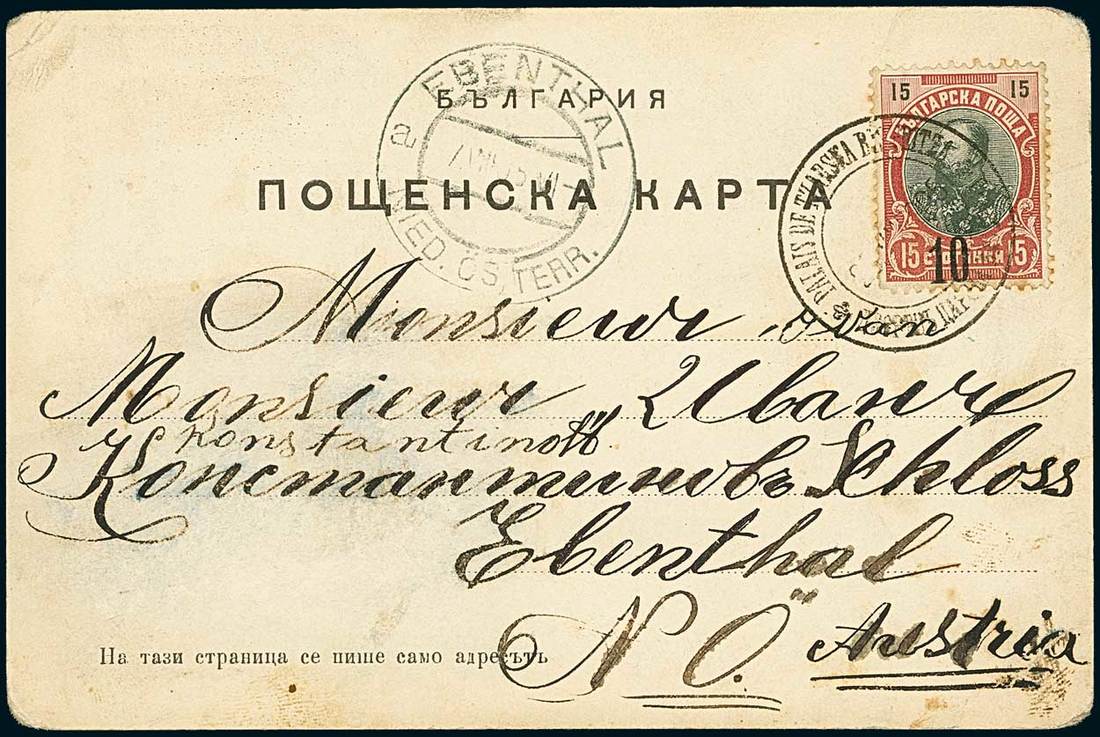 БЪЛГАРИЯ
ПОЩЕНСКА КАРТА
EBENTHAL
a
NIED. ÖSTERR.
15 15
БЪЛГАРСКА ПОЩА
15 СТОТИНКИ 15
10
PALAIS DE TZARSKA
Monsieur Ivan
Monsieur Иванъ
Konstantinoff
Константиновъ Schloss
Ebenthal
N Ö. Austria
На тази страница се пише само адресътъ